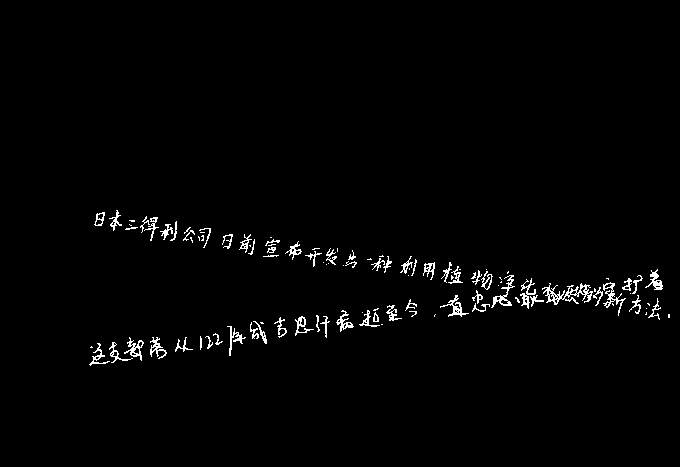 日本三得利公司日前宣布开发出一种利用植物净化新方法.
这支部落从1227年成吉思汗病逝至今,一直忠心护着